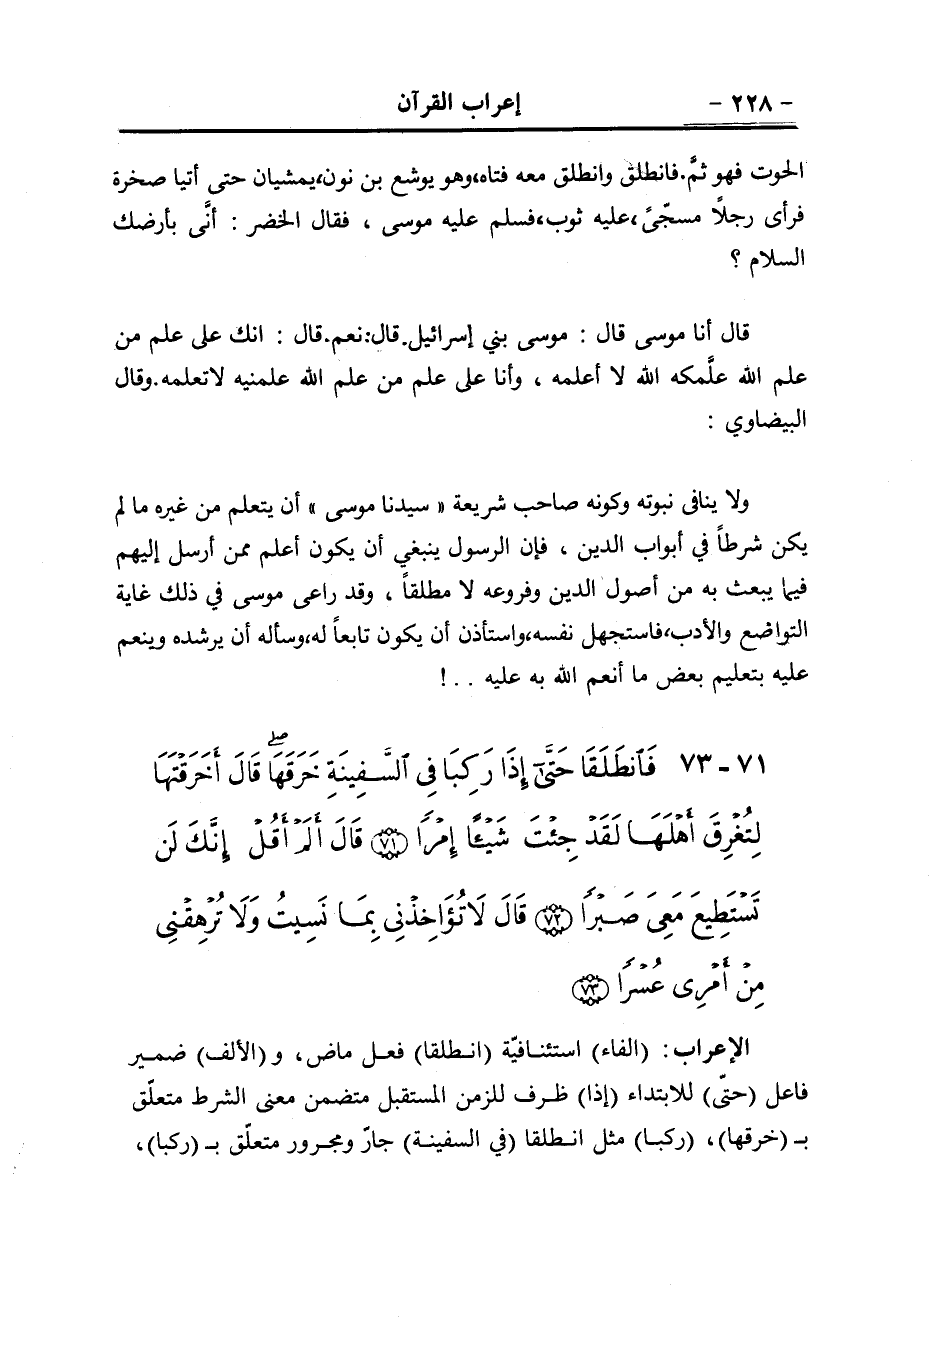 - ٢٢٨ - إعراب القرآن
الحوت فهو ثمَّ.فانطلق وانطلق معه فتاه،وهو يوشع بن نون،يمشيان حتى أتيا صخرة
فرأى رجلاً مسجّىً،عليه ثوب،فسلم عليه موسى ، فقال الخضر : أنَّى بأرضك
السلام ؟
قال أنا موسى قال : موسى بني إسرائيل.قال:نعم.قال : انك على علم من
علم الله علَّمكه الله لا أعلمه ، وأنا على علم من علم الله علمنيه لاتعلمه.وقال
البيضاوي :
ولا ينافى نبوته وكونه صاحب شريعة « سيدنا موسى » أن يتعلم من غيره ما لم
يكن شرطاً في أبواب الدين ، فإن الرسول ينبغي أن يكون أعلم ممن أرسل إليهم
فيما يبعث به من أصول الدين وفروعه لا مطلقاً ، وقد راعى موسى في ذلك غاية
التواضع والأدب،فاستجهل نفسه،واستأذن أن يكون تابعاً له،وسأله أن يرشده وينعم
عليه بتعليم بعض ما أنعم الله به عليه . . !
٧١ - ٧٣ فَٱنطَلَقَا حَتَّىٰٓ إِذَا رَكِبَا فِى ٱلسَّفِينَةِ خَرَقَهَاۖ قَالَ أَخَرَقْتَهَا
لِتُغْرِقَ أَهْلَهَا لَقَدْ جِئْتَ شَيْـًٔا إِمْرًا ﴿٧١﴾ قَالَ أَلَمْ أَقُلْ إِنَّكَ لَن
تَسْتَطِيعَ مَعِىَ صَبْرًا ﴿٧٢﴾ قَالَ لَا تُؤَاخِذْنِى بِمَا نَسِيتُ وَلَا تُرْهِقْنِى
مِنْ أَمْرِى عُسْرًا ﴿٧٣﴾
الإعراب : (الفاء) استئنافيّة (انطلقا) فعل ماض، و(الألف) ضمير
فاعل (حتّى) للابتداء (إذا) ظرف للزمن المستقبل متضمن معنى الشرط متعلّق
بـ (خرقها)، (ركبا) مثل انطلقا (في السفينة) جارّ ومجرور متعلّق بـ (ركبا)،